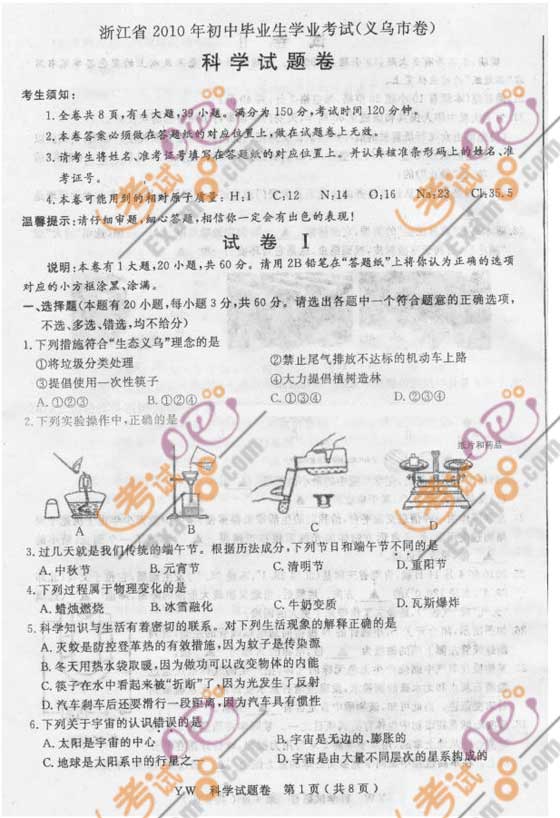 浙江省2010年初中毕业生学业考试(义乌市卷)
科学试题卷
考生须知:
1.全卷共8页,有4大题,39小题。满分为150分,考试时间120分钟。
2.本卷答案必须做在答题纸的对应位置上,做在试题卷上无效。
3.请考生将姓名、准考证号填写在答题纸的对应位置上。并认真核准条形码上的姓名、准
考证号。
4.本卷可能用到的相对原子质量:H:1 C:12 N:14 O:16 Na:23 Cl:35.5
温馨提示:请仔细审题,细心答题,相信你一定会有出色的表现!
试 卷 Ⅰ
说明:本卷有1大题,20小题,共60分。请用2B铅笔在“答题纸”上将你认为正确的选项
对应的小方框涂黑、涂满。
一、选择题(本题有20小题,每小题3分,共60分。请选出各题中一个符合题意的正确选项,
不选、多选、错选,均不给分)
1.下列措施符合“生态义乌”理念的是
①将垃圾分类处理 ②禁止尾气排放不达标的机动车上路
③提倡使用一次性筷子 ④大力提倡植树造林
A.①②③ B.①②④ C.①③④ D.②③④
2.下列实验操作中,正确的是
纸片和药品
A B C D
3.过几天就是我们传统的端午节。根据历法成分,下列节日和端午节不同的是
A.中秋节 B.元宵节 C.清明节 D.重阳节
4.下列过程属于物理变化的是
A.蜡烛燃烧 B.冰雪融化 C.牛奶变质 D.瓦斯爆炸
5.科学知识与生活有着密切的联系。对下列生活现象的解释正确的是
A.灭蚊是防控登革热的有效措施,因为蚊子是传染源
B.冬天用热水袋取暖,因为做功可以改变物体的内能
C.筷子在水中看起来被“折断”了,因为光发生了反射
D.汽车刹车后还要滑行一段距离,因为汽车具有惯性
6.下列关于宇宙的认识错误的是
A.太阳是宇宙的中心 B.宇宙是无边的、膨胀的
C.地球是太阳系中的行星之一 D.宇宙是由大量不同层次的星系构成的
YW 科学试题卷 第1页(共8页)
考试吧
Exam8.com